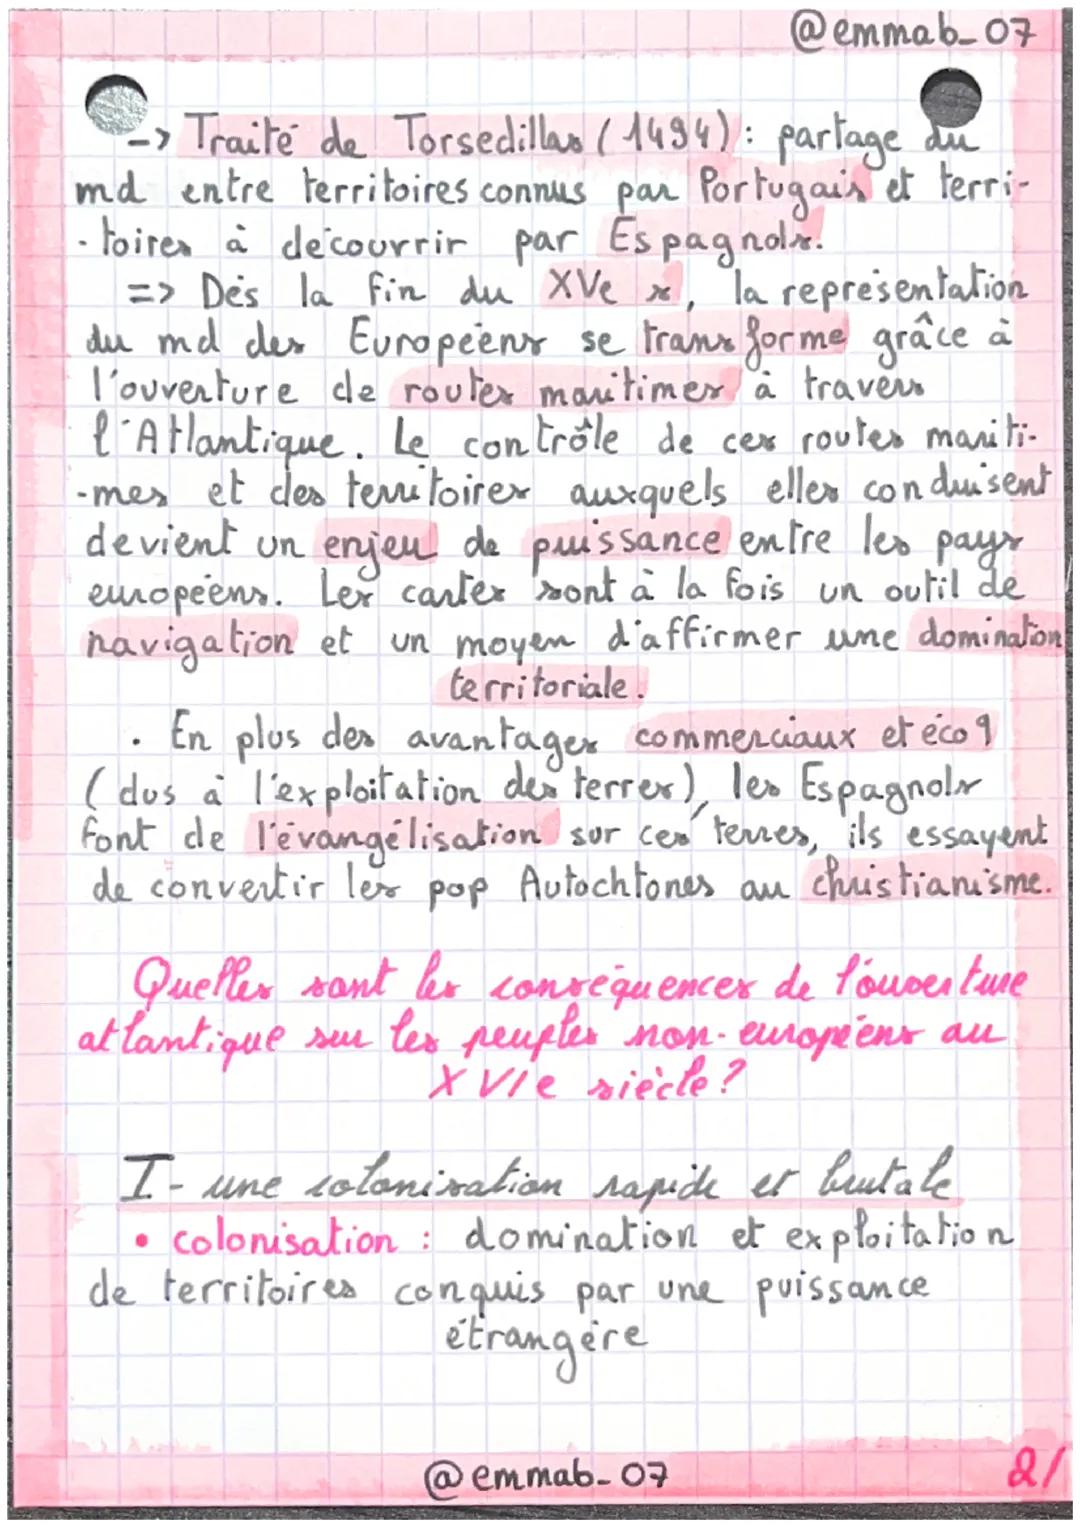 @emmab_07
-> Traité de Torsedillas (1494) : partage du
md entre territoires connus par Portugais et terri-
-toires à découvrir par Espagnols.
=> Dès la fin du XVe s, la représentation
du md des Européens se transforme grâce à
l'ouverture de routes maritimes à travers
l'Atlantique. Le contrôle de ces routes mariti-
-mes et des territoires auxquels elles conduisent
devient un enjeu de puissance entre les pays
européens. Les cartes sont à la fois un outil de
navigation et un moyen d'affirmer une domination
territoriale.
• En plus des avantages commerciaux et éco q
(dus à l'exploitation des terres), les Espagnols
font de l'évangélisation sur ces terres, ils essayent
de convertir les pop Autochtones au christianisme.
Quelles sont les conséquences de l'ouverture
atlantique sur les peuples non-européens au
XVIe siècle ?
I - une colonisation rapide et brutale
• colonisation : domination et exploitation
de territoires conquis par une puissance
étrangère
@emmab_07
2/